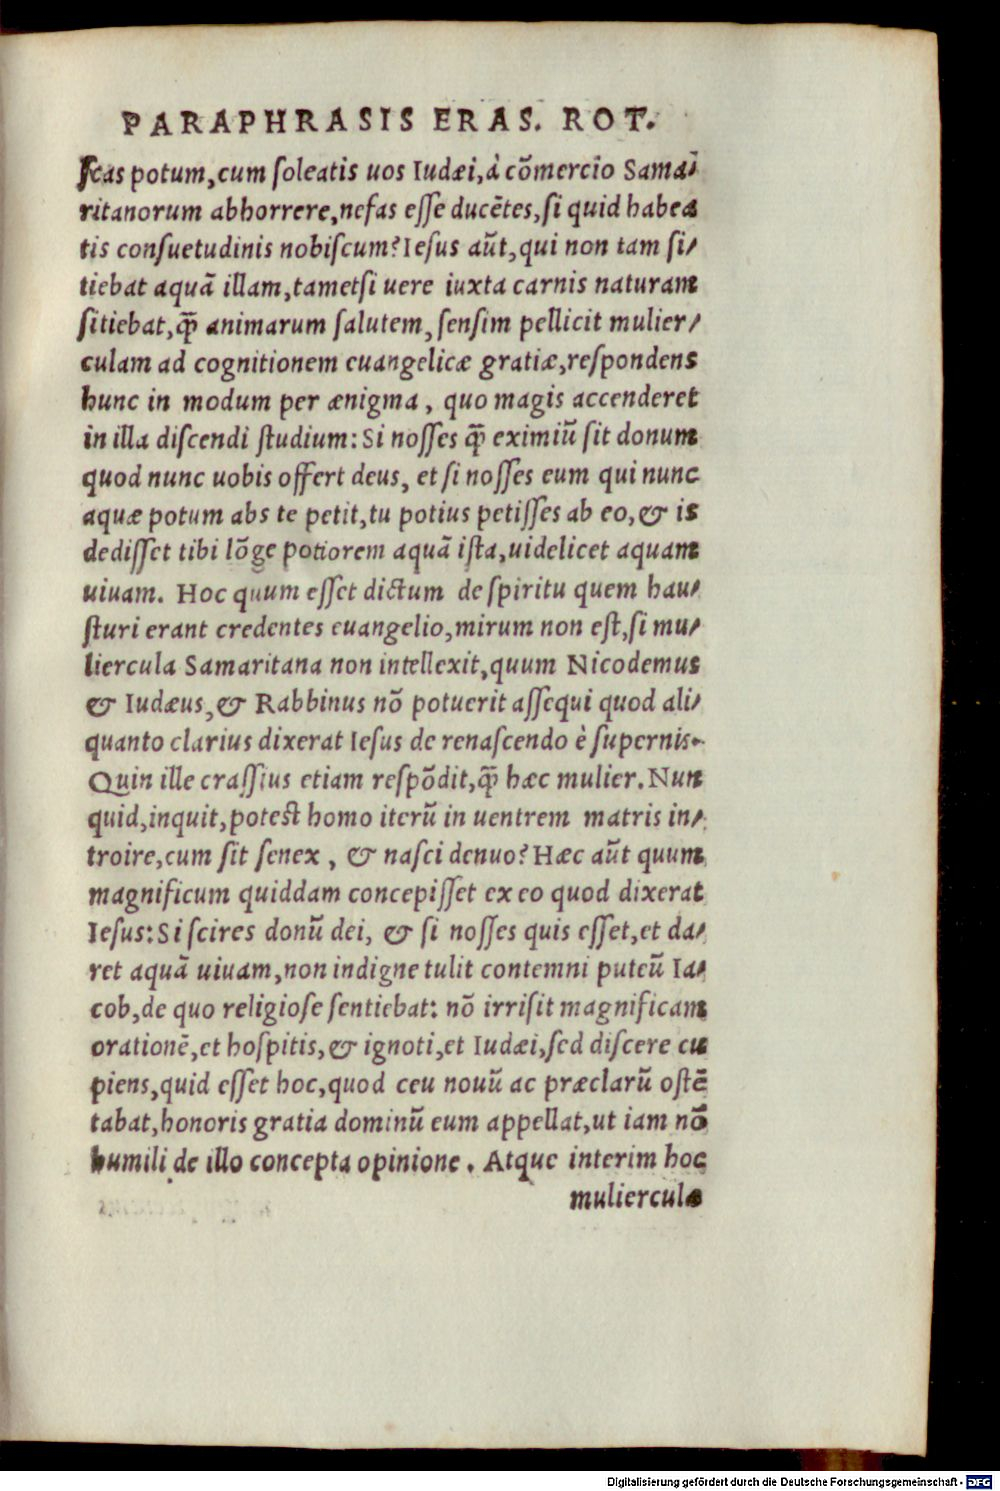 PARAPHRASIS ERAS. ROT.
ſcas potum,cum ſoleatis uos Iudæi,à cõmercio Sama⸗
ritanorum abhorrere,nefas eſſe ducẽtes,ſi quid habea
tis conſuetudinis nobiſcum?Ieſus aũt,qui non tam ſi⸗
tiebat aquã illam,tametſi uere iuxta carnis naturam
ſitiebat,q̃ꝑ animarum ſalutem,ſenſim pellicit mulier⸗
culam ad cognitionem euangelicæ gratiæ,reſpondens
hunc in modum per ænigma, quo magis accenderet
in illa diſcendi ſtudium:Si noſſes q̃ꝑ eximiũ ſit donum
quod nunc uobis offert deus, et ſi noſſes eum qui nunc
aquæ potum abs te petit,tu potius petiſſes ab eo,& is
dediſſet tibi lõge potiorem aquã iſta,uidelicet aquam
uiuam. Hoc quum eſſet dictum de ſpiritu quem hau⸗
ſturi erant credentes euangelio,mirum non eſt,ſi mu⸗
liercula Samaritana non intellexit,quum Nicodemus
& Iudæus,& Rabbinus nõ potuerit aſſequi quod ali⸗
quanto clarius dixerat Ieſus de renaſcendo è ſupernis.
Quin ille craſſius etiam reſpõdit,q̃ꝑ hæc mulier.Nun
quid,inquit,poteſt homo iterũ in uentrem matris in⸗
troire,cum ſit ſenex, & naſci denuo?Hæc aũt quum
magnificum quiddam concepiſſet ex eo quod dixerat
Ieſus:Si ſcires donũ dei, & ſi noſſes quis eſſet,et da⸗
ret aquã uiuam,non indigne tulit contemni puteũ Ia⸗
cob,de quo religioſe ſentiebat: nõ irriſit magnificam
orationẽ,et hoſpitis,& ignoti,et Iudæi,ſed diſcere cu
piens,quid eſſet hoc,quod ceu nouũ ac præclarũ oſtẽ
tabat,honoris gratia dominũ eum appellat,ut iam nõ
humili de illo concepta opinione. Atque interim hoc
muliercula
Digitalisierung gefördert durch die Deutsche Forschungsgemeinschaft - DFG